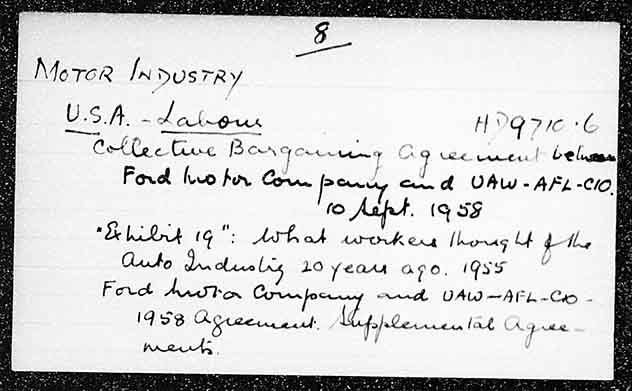 8
MOTOR INDUSTRY
U.S.A. - Labour HD9710.6
Collective Bargaining Agreement between
Ford Motor Company and UAW-AFL-CIO.
10 Sept. 1958
"Exhibit 19": What workers thought of the
Auto Industry 20 years ago. 1955
Ford Motor Company and UAW-AFL-CIO-
1958 Agreement. Supplemental Agree-
ments.